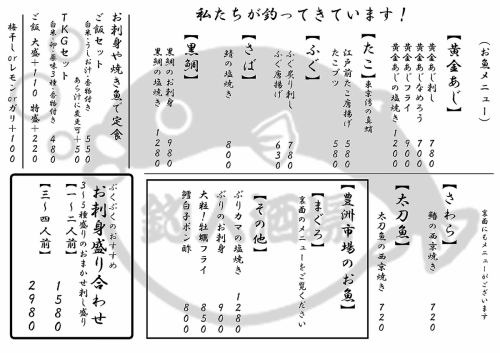 私たちが釣ってきています！
（お魚メニュー）
【黄金あじ】
黄金あじ刺し 780
黄金あじなめろう 700
黄金あじフライ 900
黄金あじの塩焼き 1200
【たこ】東京湾の真蛸
江戸前たこ唐揚げ 580
たこブツ 580
【ふぐ】
ふぐ炙り刺し 780
ふぐ唐揚げ 630
【さば】
鯖の塩焼き 800
【黒鯛】
黒鯛のお刺身 980
黒鯛の塩焼き 1280
お刺身や焼き魚で定食
ご飯セット
白米・うしお汁・香物付き 550
あら汁に変更可+50
TKGセット
白米・卵・原味3種・香物付き 480
ご飯 大盛+110 特盛+220
梅干しorレモンorガリ+100
裏面にもメニューがございます
【さわら】
鰆の西京焼き 720
【太刀魚】
太刀魚の西京焼き 720
【豊洲市場のお魚】
【まぐろ】
裏面のメニューをご覧ください
【その他】
ぶりカマの塩焼き 1280
ぶりのお刺身 900
大粒！牡蠣フライ 850
鱈白子ポン酢 800
ぷくぷくのおすすめ
お刺身盛り合わせ
3～5種盛りのおまかせ刺し盛り
【一～二人前】 1580
【三～四人前】 2980